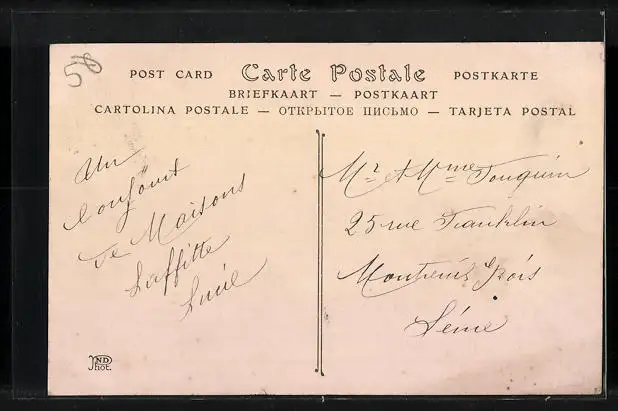 58
POST CARD Carte Postale POSTKARTE
BRIEFKAART — POSTKAART
CARTOLINA POSTALE — ОТКРЫТОЕ ПИСЬМО — TARJETA POSTAL
Un
bonjour
de Maisons
Laffitte
Lucie
Mr et Mme Touquin
25 rue Franklin
Montreuil s/ Bois
Seine
ND
Phot.